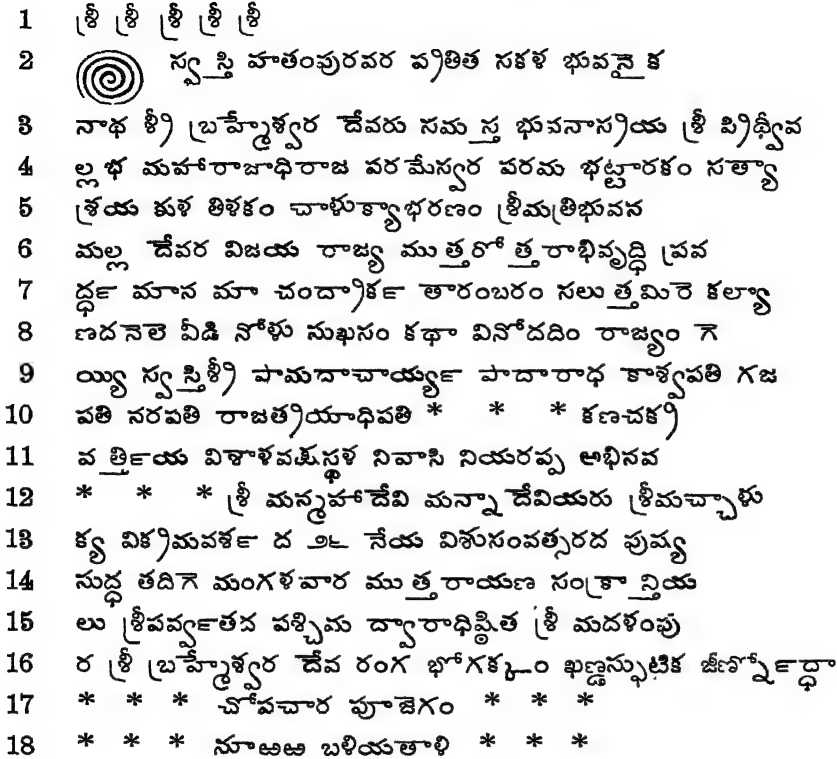 1 శ్రీ శ్రీ శ్రీ శ్రీ శ్రీ
2 స్వస్తి హతంపురవర ప్రతిత సకళ భువనైక
3 నాథ శ్రీ బ్రహ్మేశ్వర దేవరు సమస్త భువనాస్రియ శ్రీ ప్రిథ్వీవ
4 ల్లభ మహారాజాధిరాజ పరమేస్వర పరమ భట్టారకం సత్యా
5 శ్రయ కుళ తిళకం చాళుక్యాభరణం శ్రీమత్రిభువన
6 మల్ల దేవర విజయ రాజ్య ముత్తరోత్తరాభివృద్ధి ప్రవ
7 ర్ద్ధ మాన మా చంద్రార్క తారంబరం సలుత్తమిరె కల్యా
8 ణద నెలె వీడి నోళు సుఖసం కథా వినోదదిం రాజ్యం గె
9 య్యి స్వస్తిశ్రీ పామదాచార్య్య పాదారాధ కాశ్వపతి గజ
10 పతి నరపతి రాజత్రియాధిపతి * * * కణచక్రి
11 వర్త్తియ విశాళవక్షస్థళ నివాసి నియరప్ప అభినవ
12 * * * శ్రీ మన్మహాదేవి మన్నా దేవియరు శ్రీమచ్చాళు
13 క్య విక్రిమవర్శ ద ౨౬ నేయ విశుసంవత్సరద పుష్య
14 సుద్ధ తదిగె మంగళవార ముత్తరాయణ సంక్రాన్తియ
15 లు శ్రీపర్వ్వతద పశ్చిమ ద్వారాధిష్ఠిత శ్రీ మదళంపు
16 ర శ్రీ బ్రహ్మేశ్వర దేవ రంగ భోగక్కం ఖణ్డస్ఫుటిక జీర్ణ్నోర్ద్ధా
17 * * * చోపచార పూజెగం * * *
18 * * * నూఱఱ బళియతాళి * * *